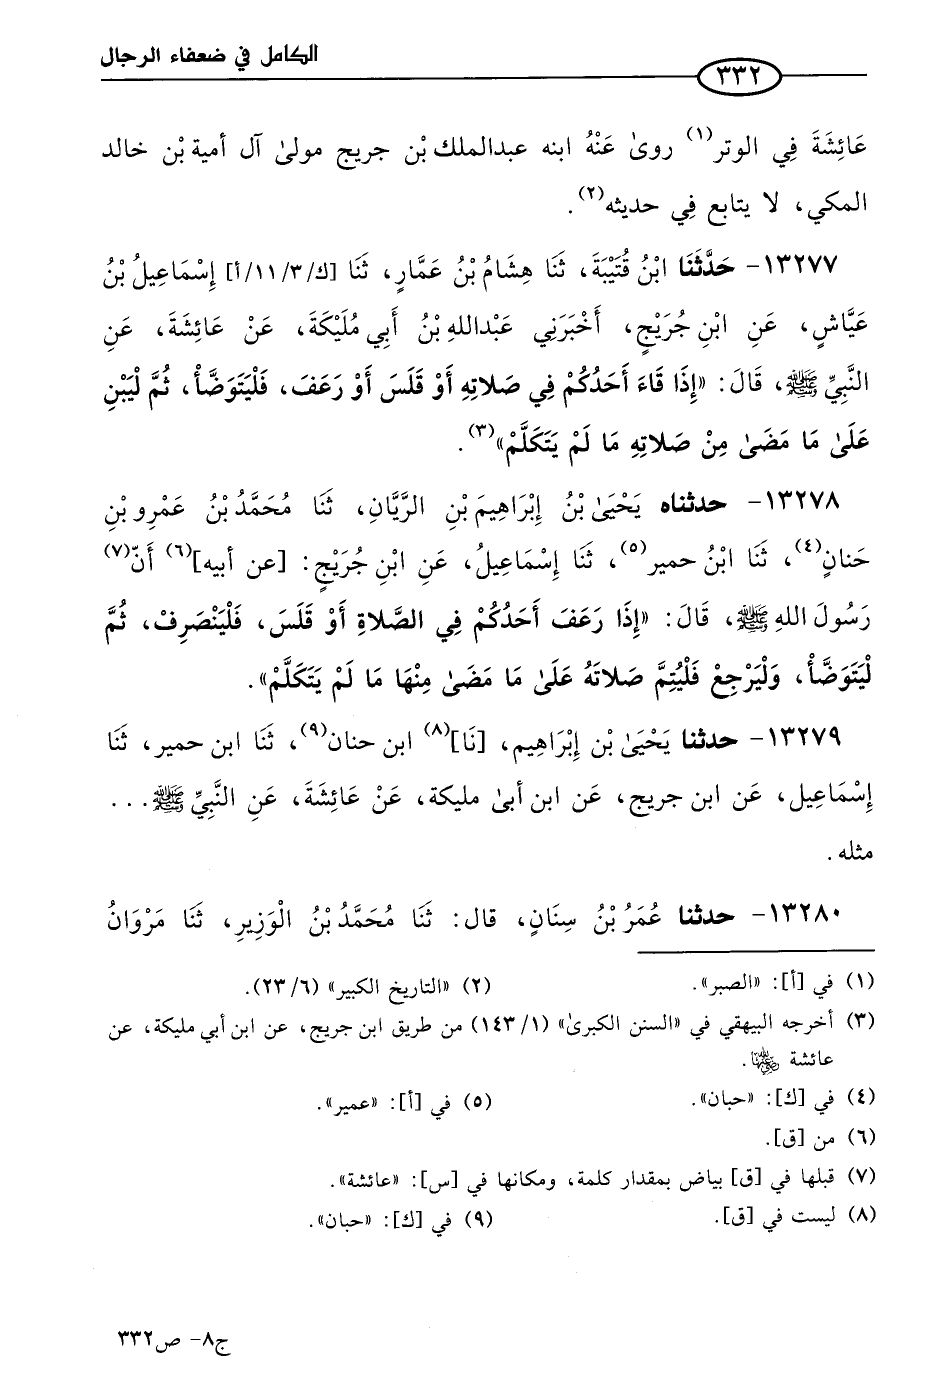 الكامل في ضعفاء الرجال
٣٣٢
عَائِشَةَ فِي الوتر(١) روىٰ عَنْهُ ابنه عبدالملك بْن جريج مولىٰ آل أمية بْن خالد
المكي، لا يتابع فِي حديثه(٢).
١٣٢٧٧- حَدَّثَنَا ابْنُ قُتَيْبَةَ، ثَنَا هِشَامُ بْنُ عَمَّارٍ، ثَنَا [ك/٣/١١/أ] إِسْمَاعِيلُ بْنُ
عَيَّاشٍ، عَنِ ابْنِ جُرَيْجٍ، أَخْبَرَنِي عَبْداللهِ بْنُ أَبِي مُلَيْكَةَ، عَنْ عَائِشَةَ، عَنِ
النَّبِيِّ ﷺ، قَالَ: «إِذَا قَاءَ أَحَدُكُمْ فِي صَلاتِهِ أَوْ قَلَسَ أَوْ رَعَفَ، فَلْيَتَوَضَّأْ، ثُمَّ لْيَبْنِ
عَلَىٰ مَا مَضَىٰ مِنْ صَلاتِهِ مَا لَمْ يَتَكَلَّمْ»(٣).
١٣٢٧٨- حدثناه يَحْيَىٰ بْنُ إِبْرَاهِيمَ بْنِ الرَّيَّانِ، ثَنَا مُحَمَّدُ بْنُ عَمْرِو بْنِ
حَنانٍ(٤)، ثَنَا ابْنُ حمير(٥)، ثَنَا إِسْمَاعِيلُ، عَنِ ابْنِ جُرَيْجٍ: [عن أبيه](٦) أَنّ(٧)
رَسُولَ اللهِ ﷺ، قَالَ: «إِذَا رَعَفَ أَحَدُكُمْ فِي الصَّلاةِ أَوْ قَلَسَ، فَلْيَنْصَرِفْ، ثُمَّ
لْيَتَوَضَّأْ، وَلْيَرْجِعْ فَلْيُتِمَّ صَلاتَهُ عَلَىٰ مَا مَضَىٰ مِنْهَا مَا لَمْ يَتَكَلَّمْ».
١٣٢٧٩- حدثنا يَحْيَىٰ بْن إِبْرَاهِيم، [نَا](٨) ابن حنان(٩)، ثَنَا ابن حمير، ثَنَا
إِسْمَاعِيل، عَن ابن جريج، عَن ابن أبىٰ مليكة، عَنْ عَائِشَةَ، عَنِ النَّبِيِّ ﷺ...
مثله.
١٣٢٨٠- حدثنا عُمَرُ بْنُ سِنَانٍ، قال: ثَنَا مُحَمَّدُ بْنُ الْوَزِيرِ، ثَنَا مَرْوَانُ
(١) في [أ]: «الصبر». (٢) «التاريخ الكبير» (٢٣/٦).
(٣) أخرجه البيهقي في «السنن الكبرىٰ» (١/١٤٣) من طريق ابن جريج، عن ابن أبي مليكة، عن
عائشة رضي الله عنها.
(٤) في [ك]: «حبان». (٥) في [أ]: «عمير».
(٦) من [ق].
(٧) قبلها في [ق] بياض بمقدار كلمة، ومكانها في [س]: «عائشة».
(٨) ليست في [ق]. (٩) في [ك]: «حبان».
ج٨- ص٣٣٢